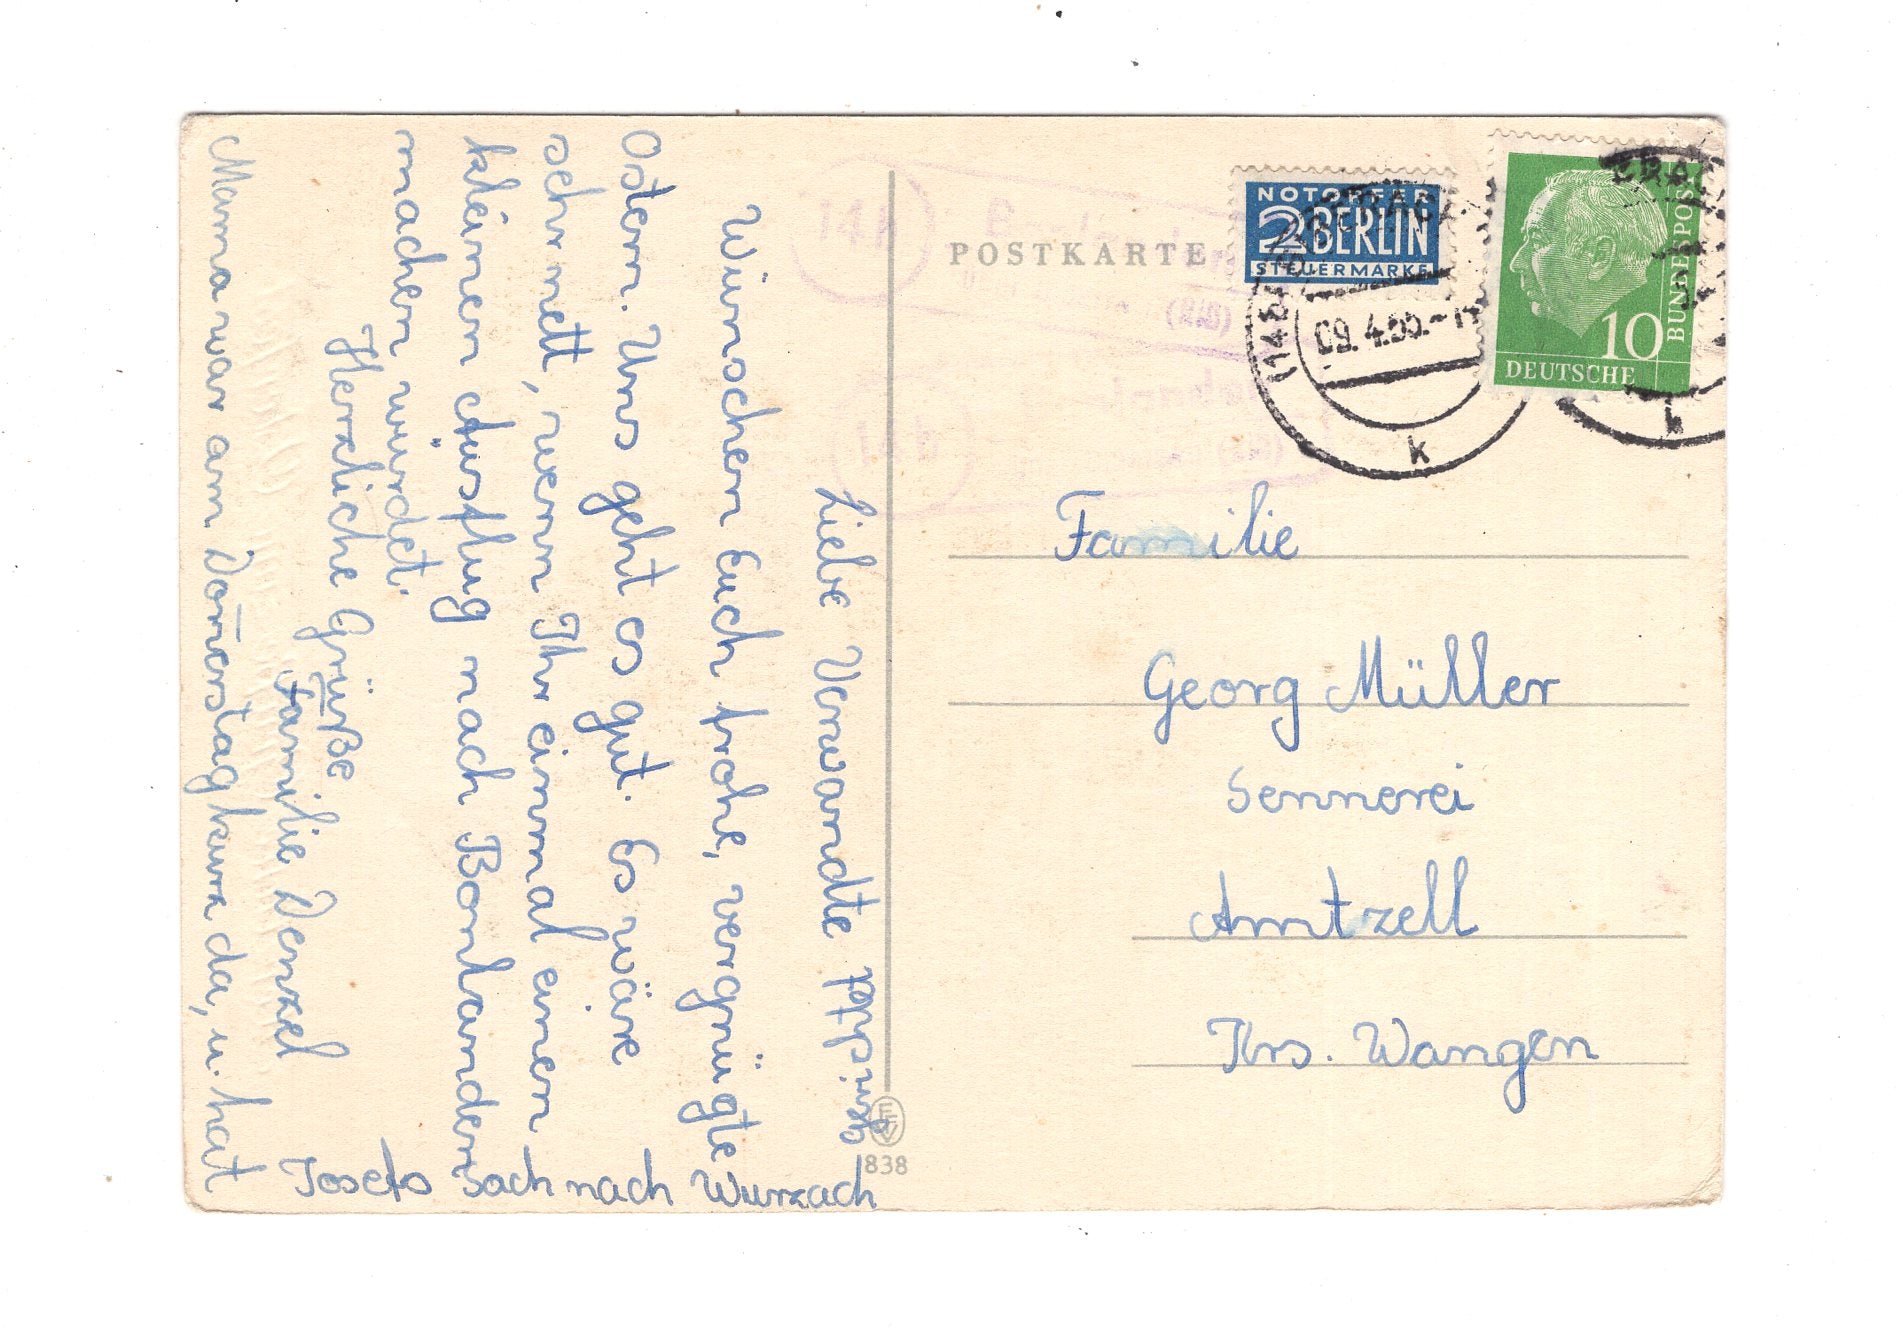 Liebe Verwandte
Wünschen Euch frohe, vergnügte
Ostern. Uns geht es gut. Es wäre
sehr nett, wenn Ihr einmal einen
kleinen Ausflug nach Bonlanden
machen würdet.
Herzliche Grüße
Familie Denzel
Mama war am Donnerstag kurz da, u. hat
Josefs Sach nach Wurzach
838
POSTKARTE
NOTOPFER
2 BERLIN
STEUERMARKE
(14b) BIBERACH
09.4.55.-
k
10
DEUTSCHE
BUNDESPOST
k
14b
Familie
Georg Müller
Sennerei
Amtzell
Krs. Wangen